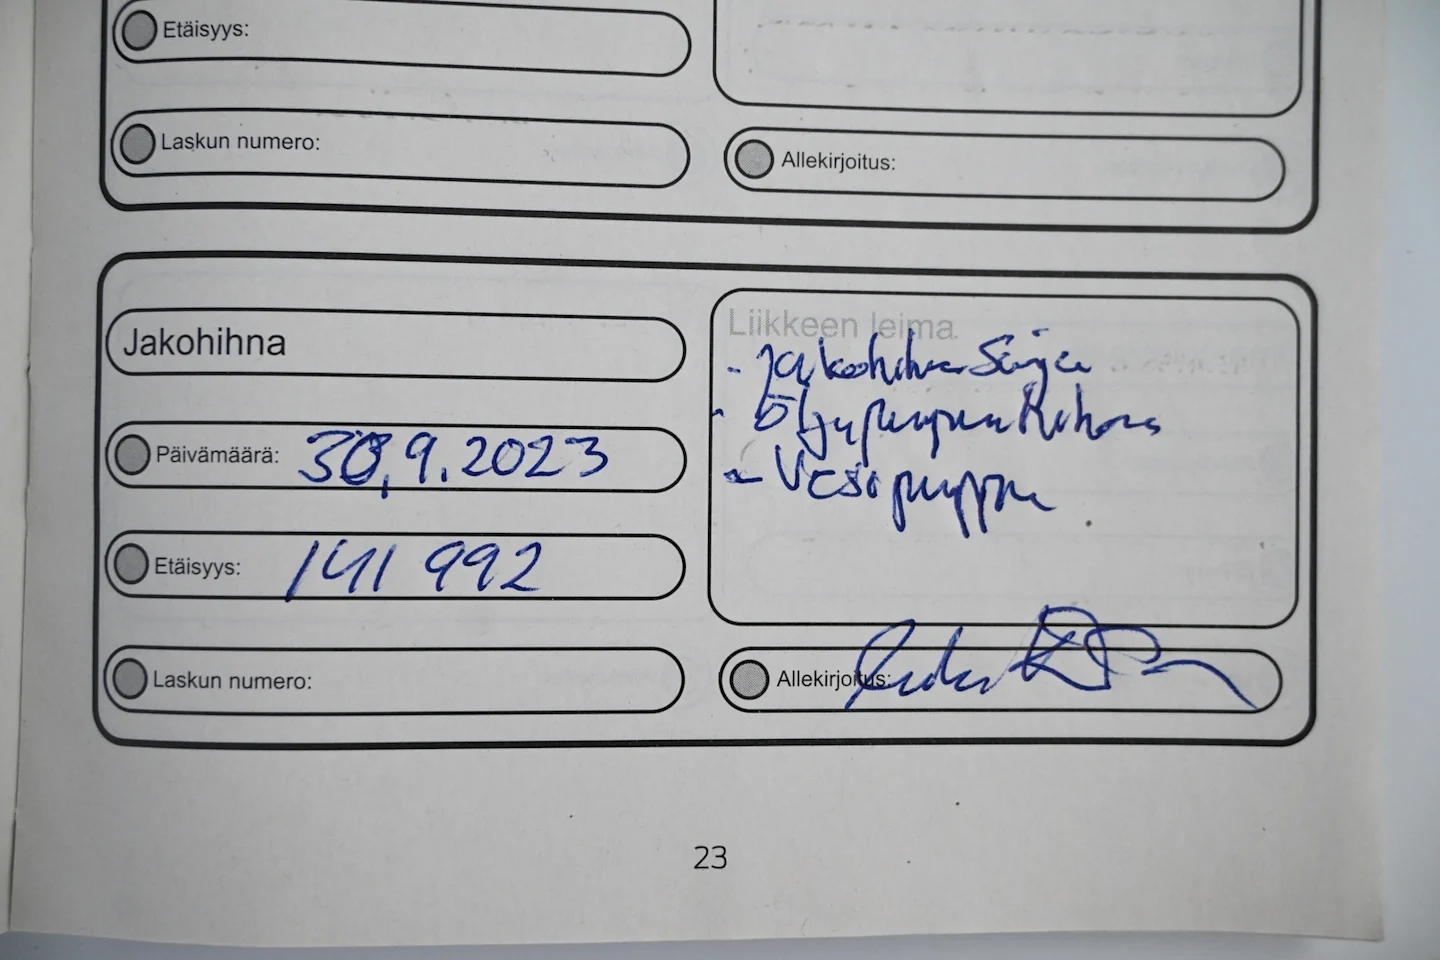 Etäisyys:
Laskun numero:
Allekirjoitus:
Jakohihna
Liikkeen leima
- Jakohihna Sarja
Päivämäärä: 30.9.2023
- Öljypumpun hihna
- Vesipumppu
Etäisyys: 141 992
Laskun numero:
Allekirjoitus:
23